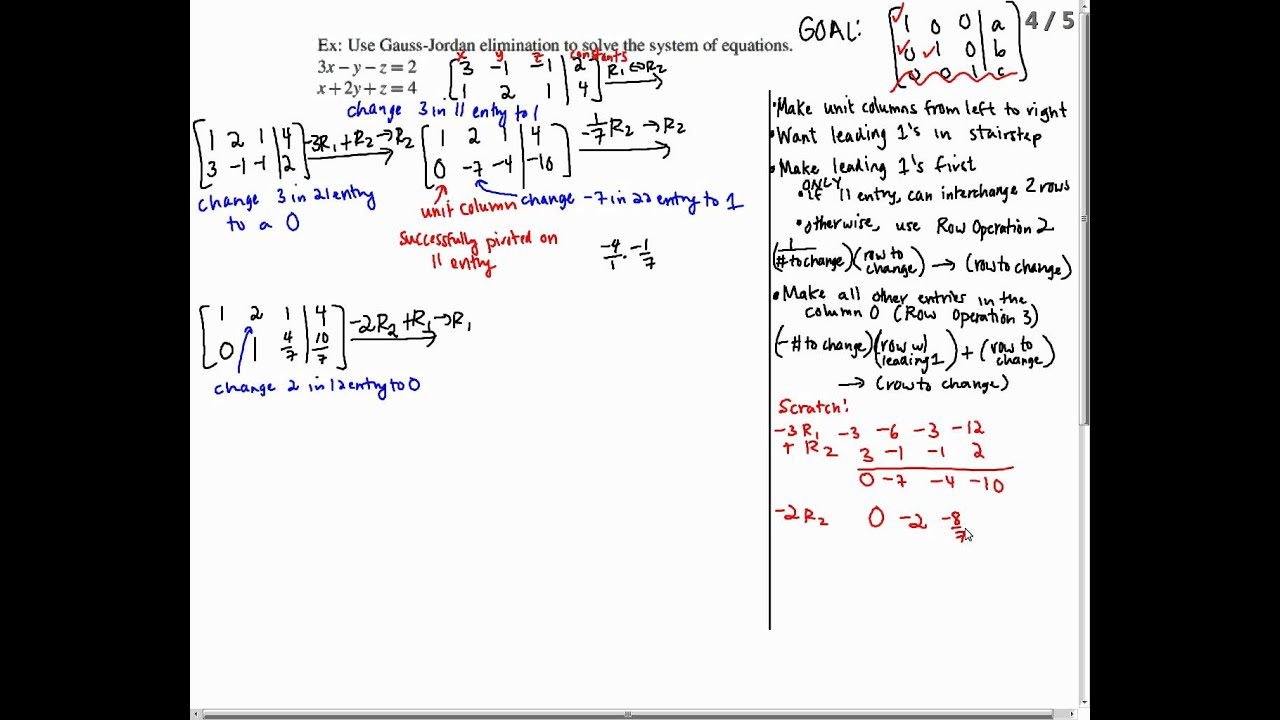 4 / 5
GOAL: [ 1 0 0 | a
0 1 0 | b
0 0 1 | c ]
Ex: Use Gauss-Jordan elimination to solve the system of equations.
3x − y − z = 2
x + 2y + z = 4
x y z constants
[ 3 -1 -1 | 2
1 2 1 | 4 ] R1 ↔ R2
change 3 in 11 entry to 1
[ 1 2 1 | 4
3 -1 -1 | 2 ] -3R1 + R2 → R2
[ 1 2 1 | 4
0 -7 -4 | -10 ] -1/7 R2 → R2
change 3 in 21 entry
to a 0
unit column
change -7 in 22 entry to 1
Successfully pivited on
11 entry
-4/1 · -1/7
[ 1 2 1 | 4
0 1 4/7 | 10/7 ] -2R2 + R1 → R1
change 2 in 12 entry to 0
• Make unit columns from left to right
• Want leading 1's in stairstep
• Make leading 1's first
ONLY
• if 11 entry, can interchange 2 rows
• otherwise, use Row Operation 2
(1/# to change)(row to change) → (row to change)
• Make all other entries in the
column 0 (Row Operation 3)
(-# to change)(row w/ leading 1) + (row to change)
→ (row to change)
Scratch:
-3R1 -3 -6 -3 -12
+ R2 3 -1 -1 2
0 -7 -4 -10
-2R2 0 -2 -8/7